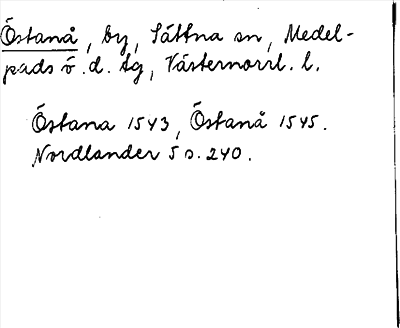 Östanå, by, Sättna sn, Medel-
pads ö. d. tg, Västernorrl. l.
Östana 1543, Östanå 1545.
Nordlander 5 s. 240.